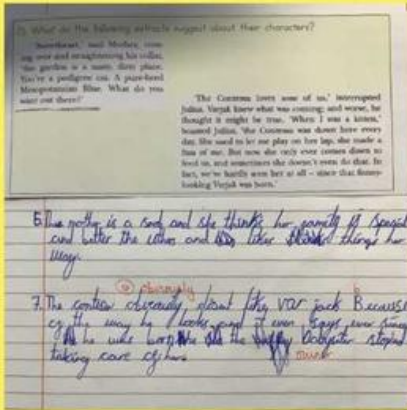 What do the following extracts suggest about their characters?
'Sweetheart,' said Mother, com-
ing over and straightening his collar,
'the garden is a nasty, dirty place.
You're a pedigree cat. A pure-bred
Mesopotamian Blue. What do you
want out there?'
'The Contessa loves some of us,' interrupted
Julius. Varjak knew what was coming; and worse, he
thought it might be true. 'When I was a kitten,'
boasted Julius, 'the Contessa was down here every
day. She used to let me play on her lap, she made a
fuss of me. But now she only ever comes down to
feed us, and sometimes she doesn't even do that. In
fact, we've hardly seen her at all – since that funny-
looking Varjak was born.'
6. The mother is a snob and she thinks her family is special
and better the others and likes things her
way.
obviously
7. The contessa obveously dosnt like var jack Because
of the way he looks and it even says ever since
he was born the
taking care of